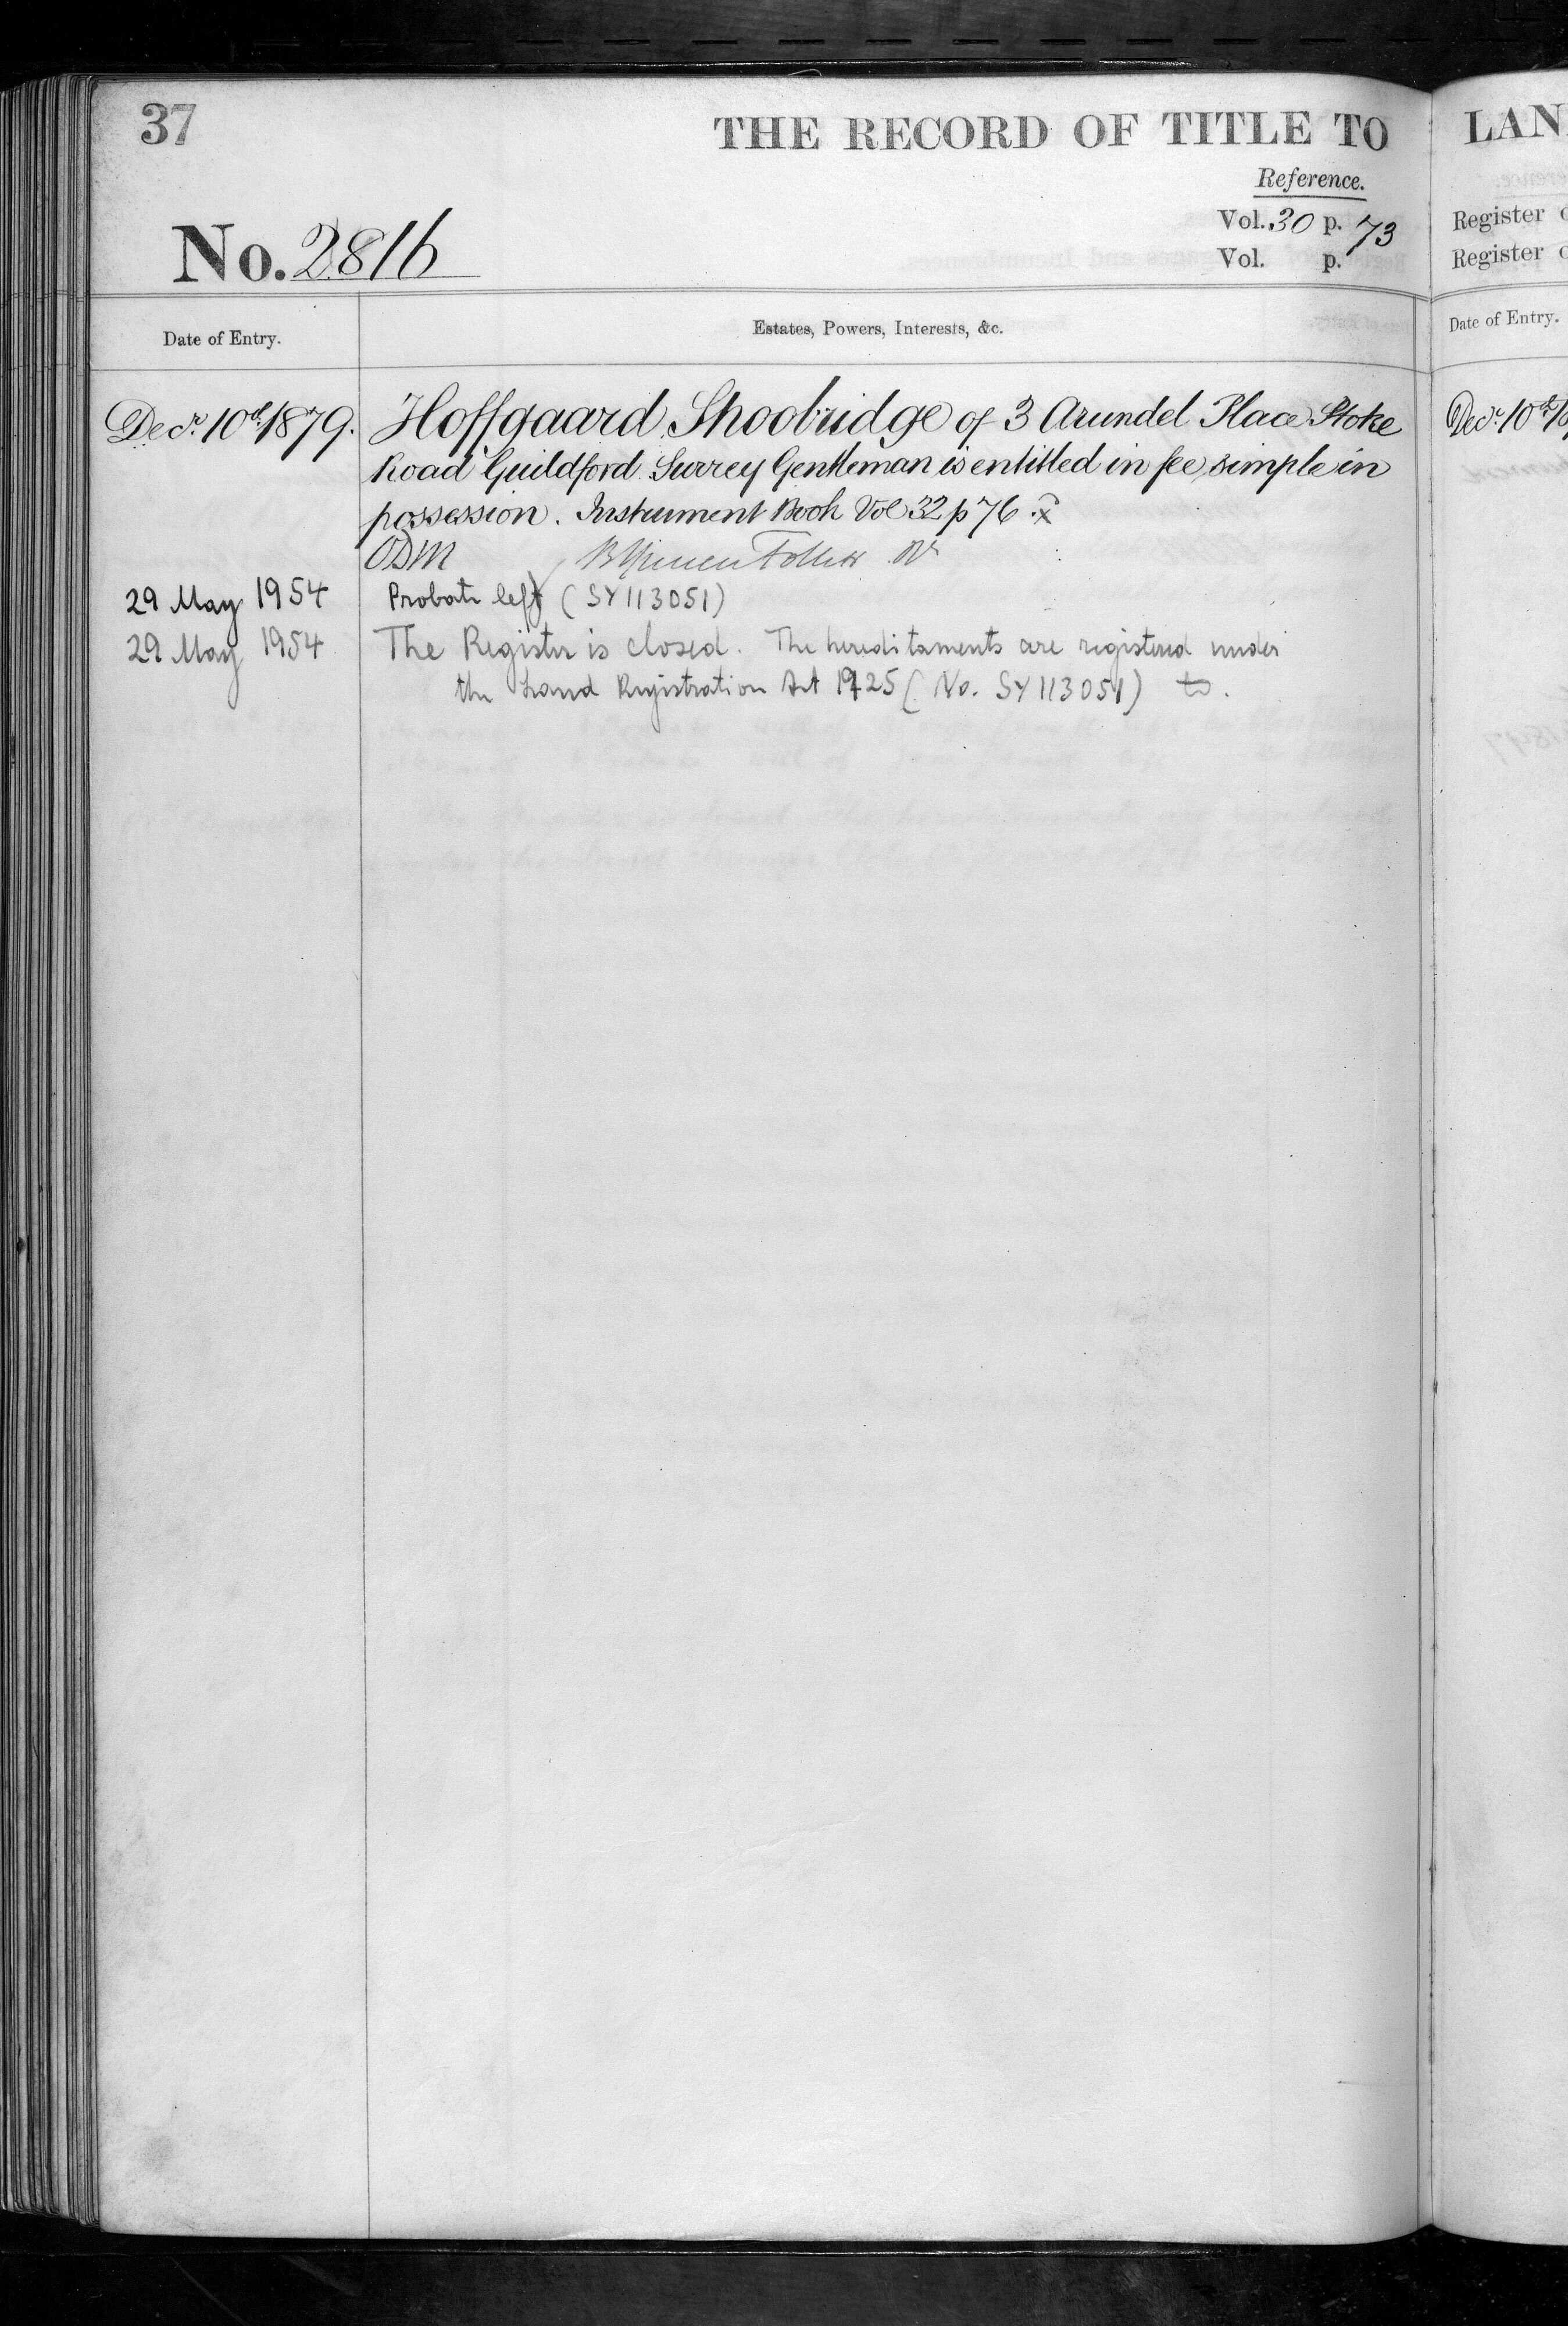 37
THE RECORD OF TITLE TO
LAN
Reference.
Vol. 30 p. 73
Register
No. 2816
Vol. p.
Register
Date of Entry.
Estates, Powers, Interests, &c.
Date of Entry.
Decr. 10th 1879.
Hoffgaard Shoobridge of 3 Arundel Place Stoke
Decr. 10th 18
Road Guildford Surrey Gentleman is entitled in fee simple in
possession. Instrument Book Vol 32 p 76. x
ODM
29 May 1954
Probate left (SY113051)
29 May 1954
The Register is closed. The hereditaments are registered under
the Land Registration Act 1925 (No. SY113051)